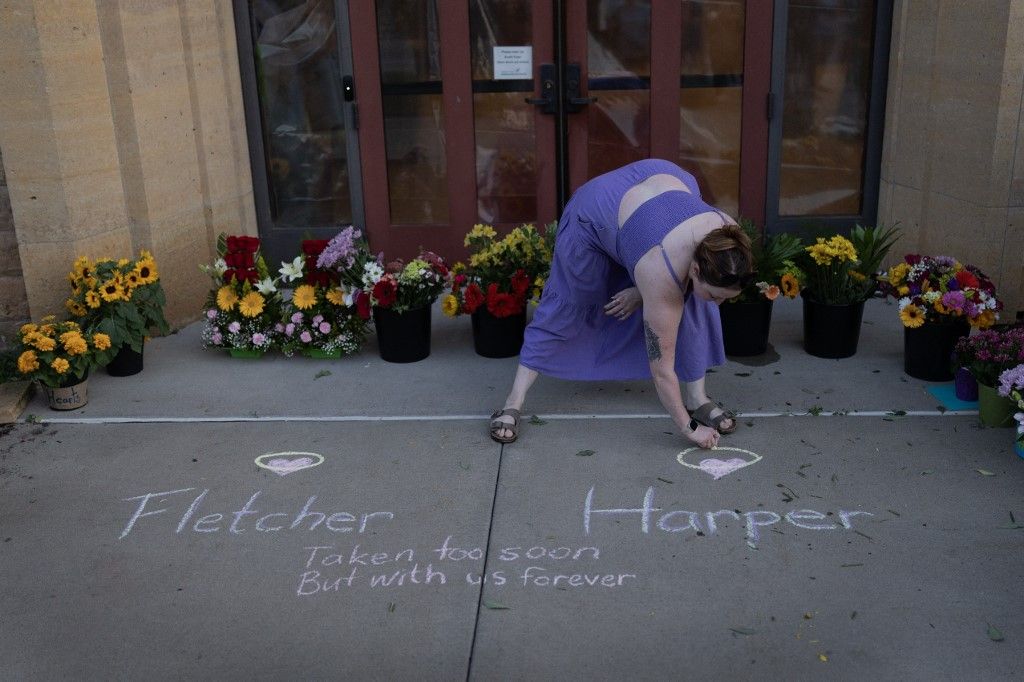 Fletcher
Harper
Taken too soon
But with us forever
Hearts